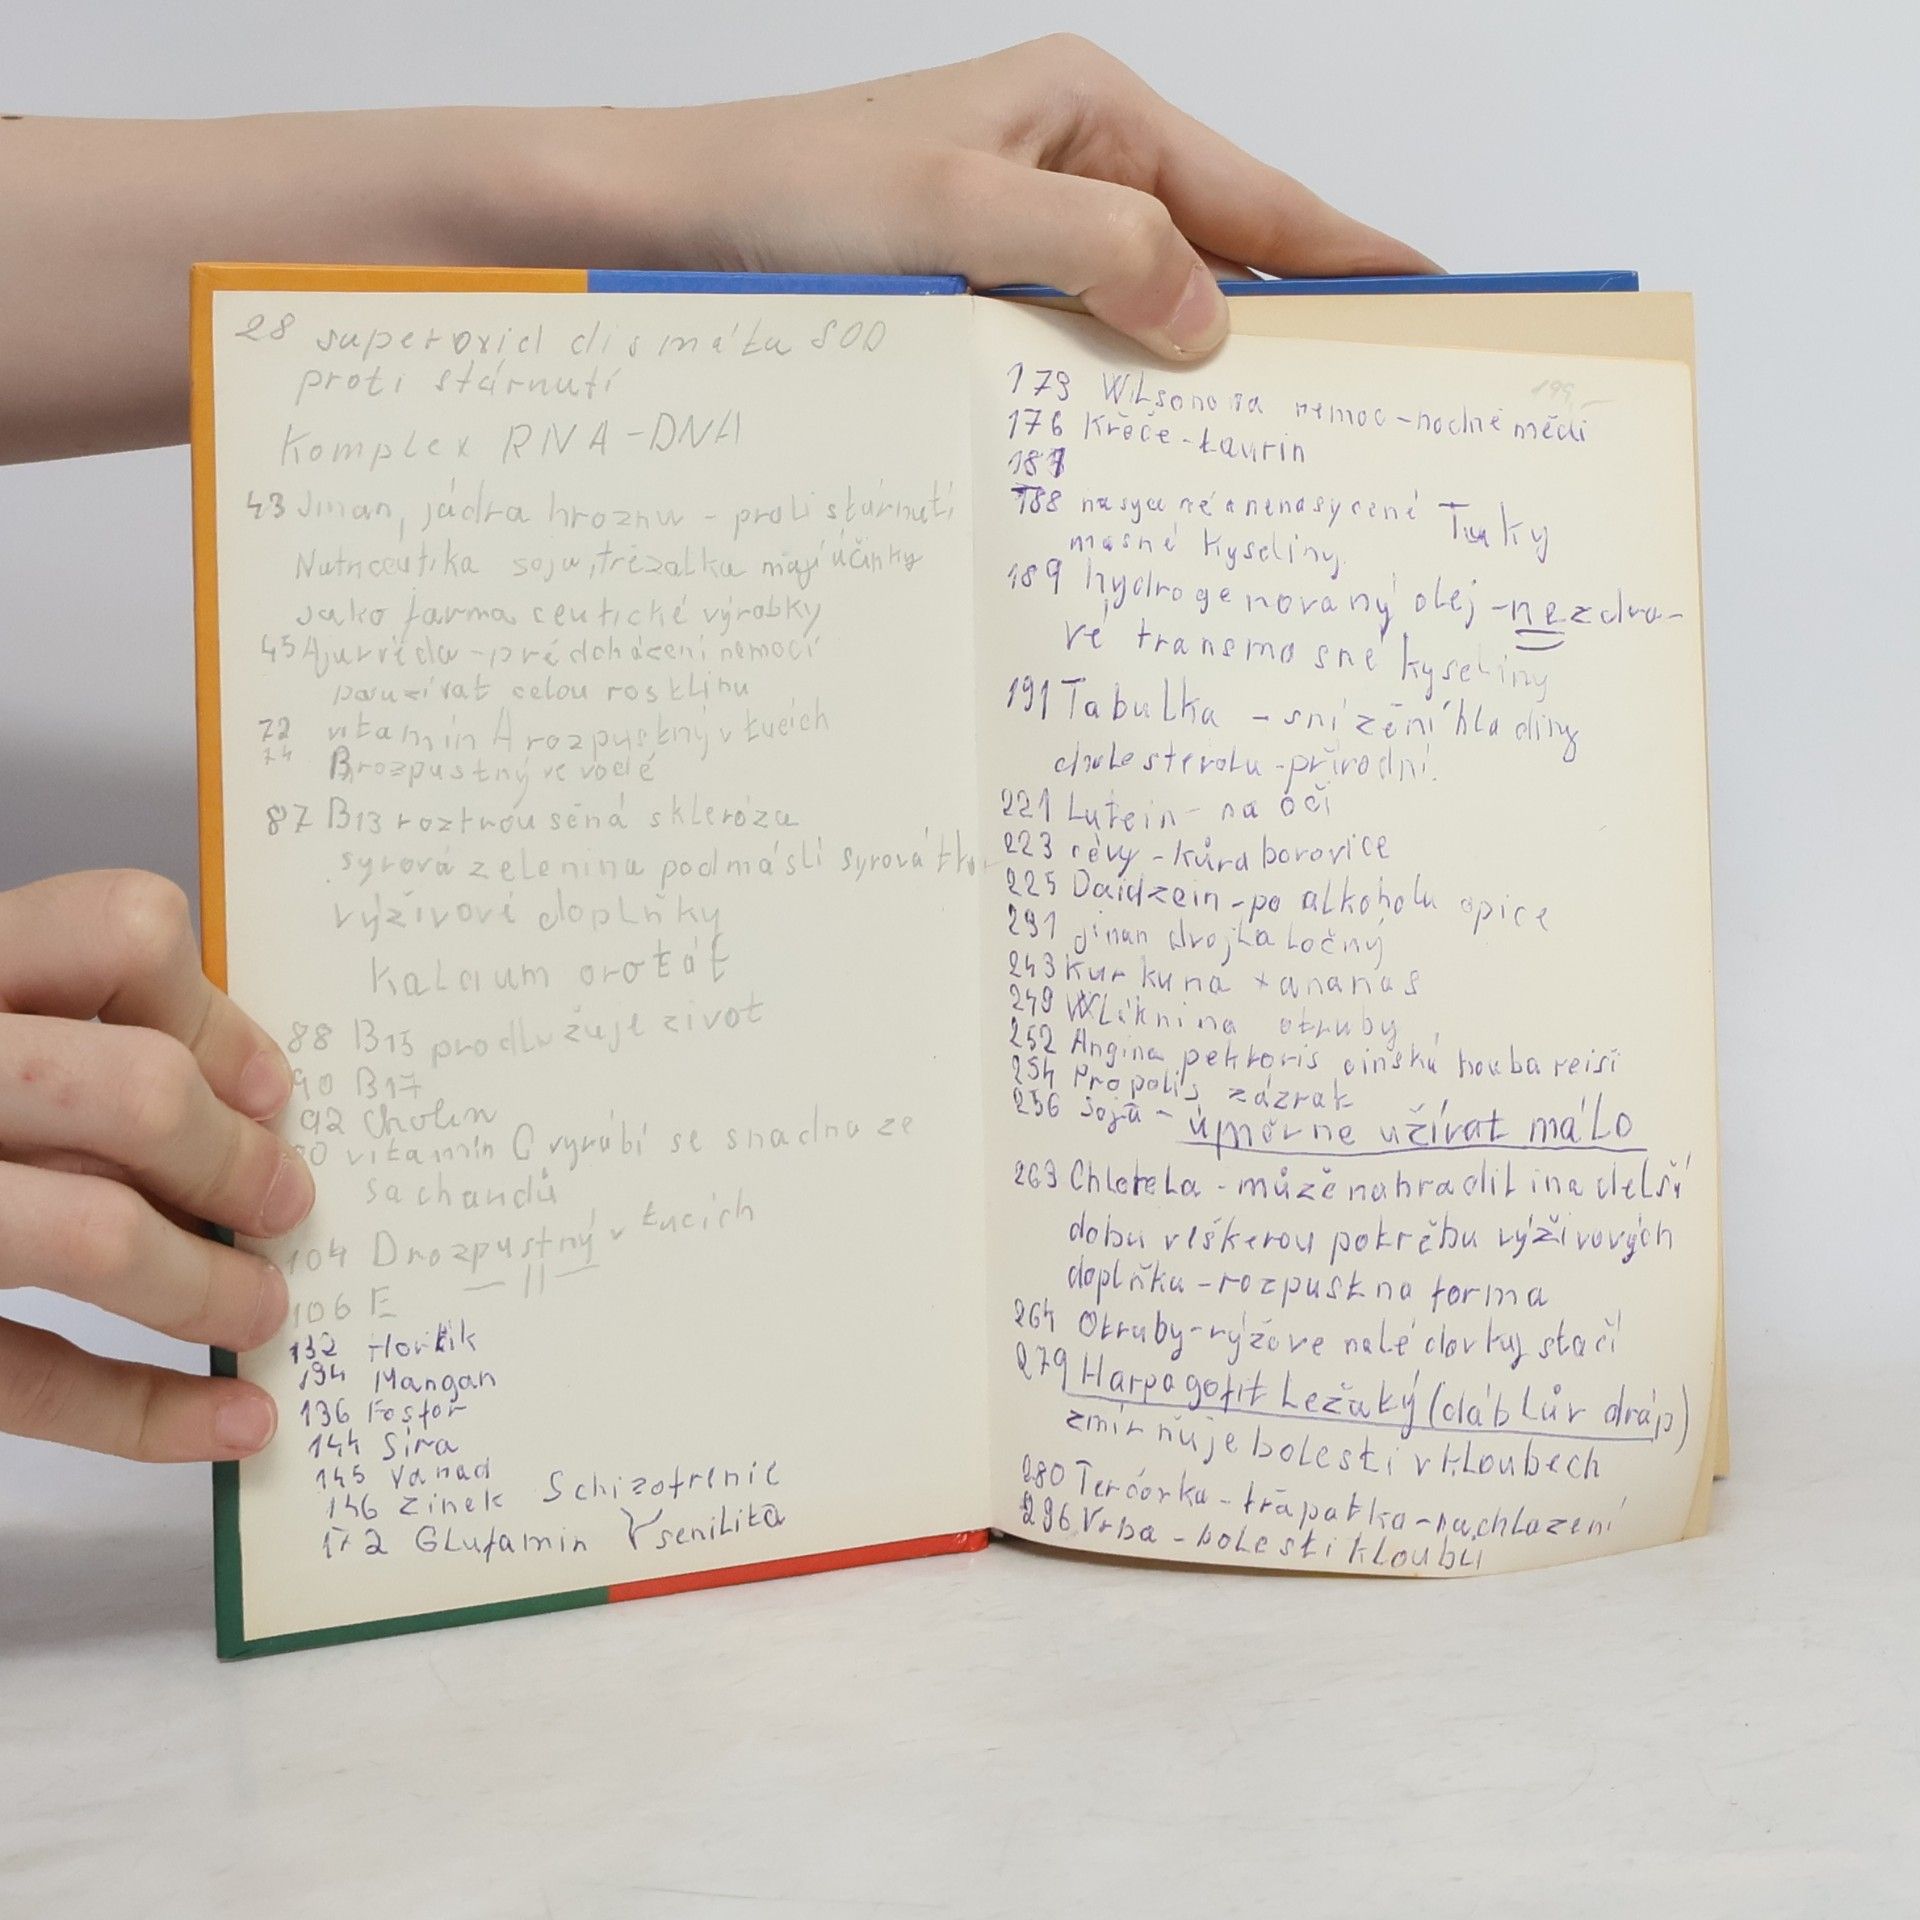 28 superoxid dismáta SOD
proti stárnutí
Komplex RNA-DNA
43 Jinan, jádra hroznu - proti stárnutí
Nutriceutika soju, třezalku mají účinky
jako farmaceutické výrobky
45 Ajurvéda - předcházení nemocí
používat celou rostlinu
72 vitamín A rozpustný v tucích
74 B rozpustný ve vodě
87 B13 roztroušená skleróza
syrová zelenina podmáslí
výživové doplňky
Kalcium orotát
88 B15 prodlužuje život
90 B17
92 Cholin
vitamín C vyrábí se snadno ze
sacharidů
104 D rozpustný v tucích
106 E — 11 —
132 Hořčík
134 Mangan
136 Fosfor
144 Síra
145 Vanad
146 Zinek Schizofrenie
172 Glutamin senilita
173 Wilsonova nemoc - hodně mědi
176 Křeče - taurin
187
188 nasycené a nenasycené Tuky
masné kyseliny
189 hydrogenovaný olej - nezdra-
vé transmasné kyseliny
191 Tabulka - snížění hladiny
cholesterolu - přírodní.
221 Lutein - na oči
223 cévy - kůra borovice
225 Daidzein - po alkoholu opice
231 jinan dvojlaločný
243 Kurkuna + ananas
249 Vláknina otruby
252 Angina pektoris čínská houba reiši
254 Propolis zázrak
256 Soja - úměrně užívat málo
263 Chlorela - můzě nahradit i na delší
dobu veškerou potřebu výživových
doplňku - rozpustna forma
264 Otruby - rýžove malé davky stačí
279 Harpagofit Ležatý (dáblův dráp)
zmírňuje bolesti v kloubech
280 Terčovka - třapatka - nachlazení
296 Vrba - bolesti kloubů